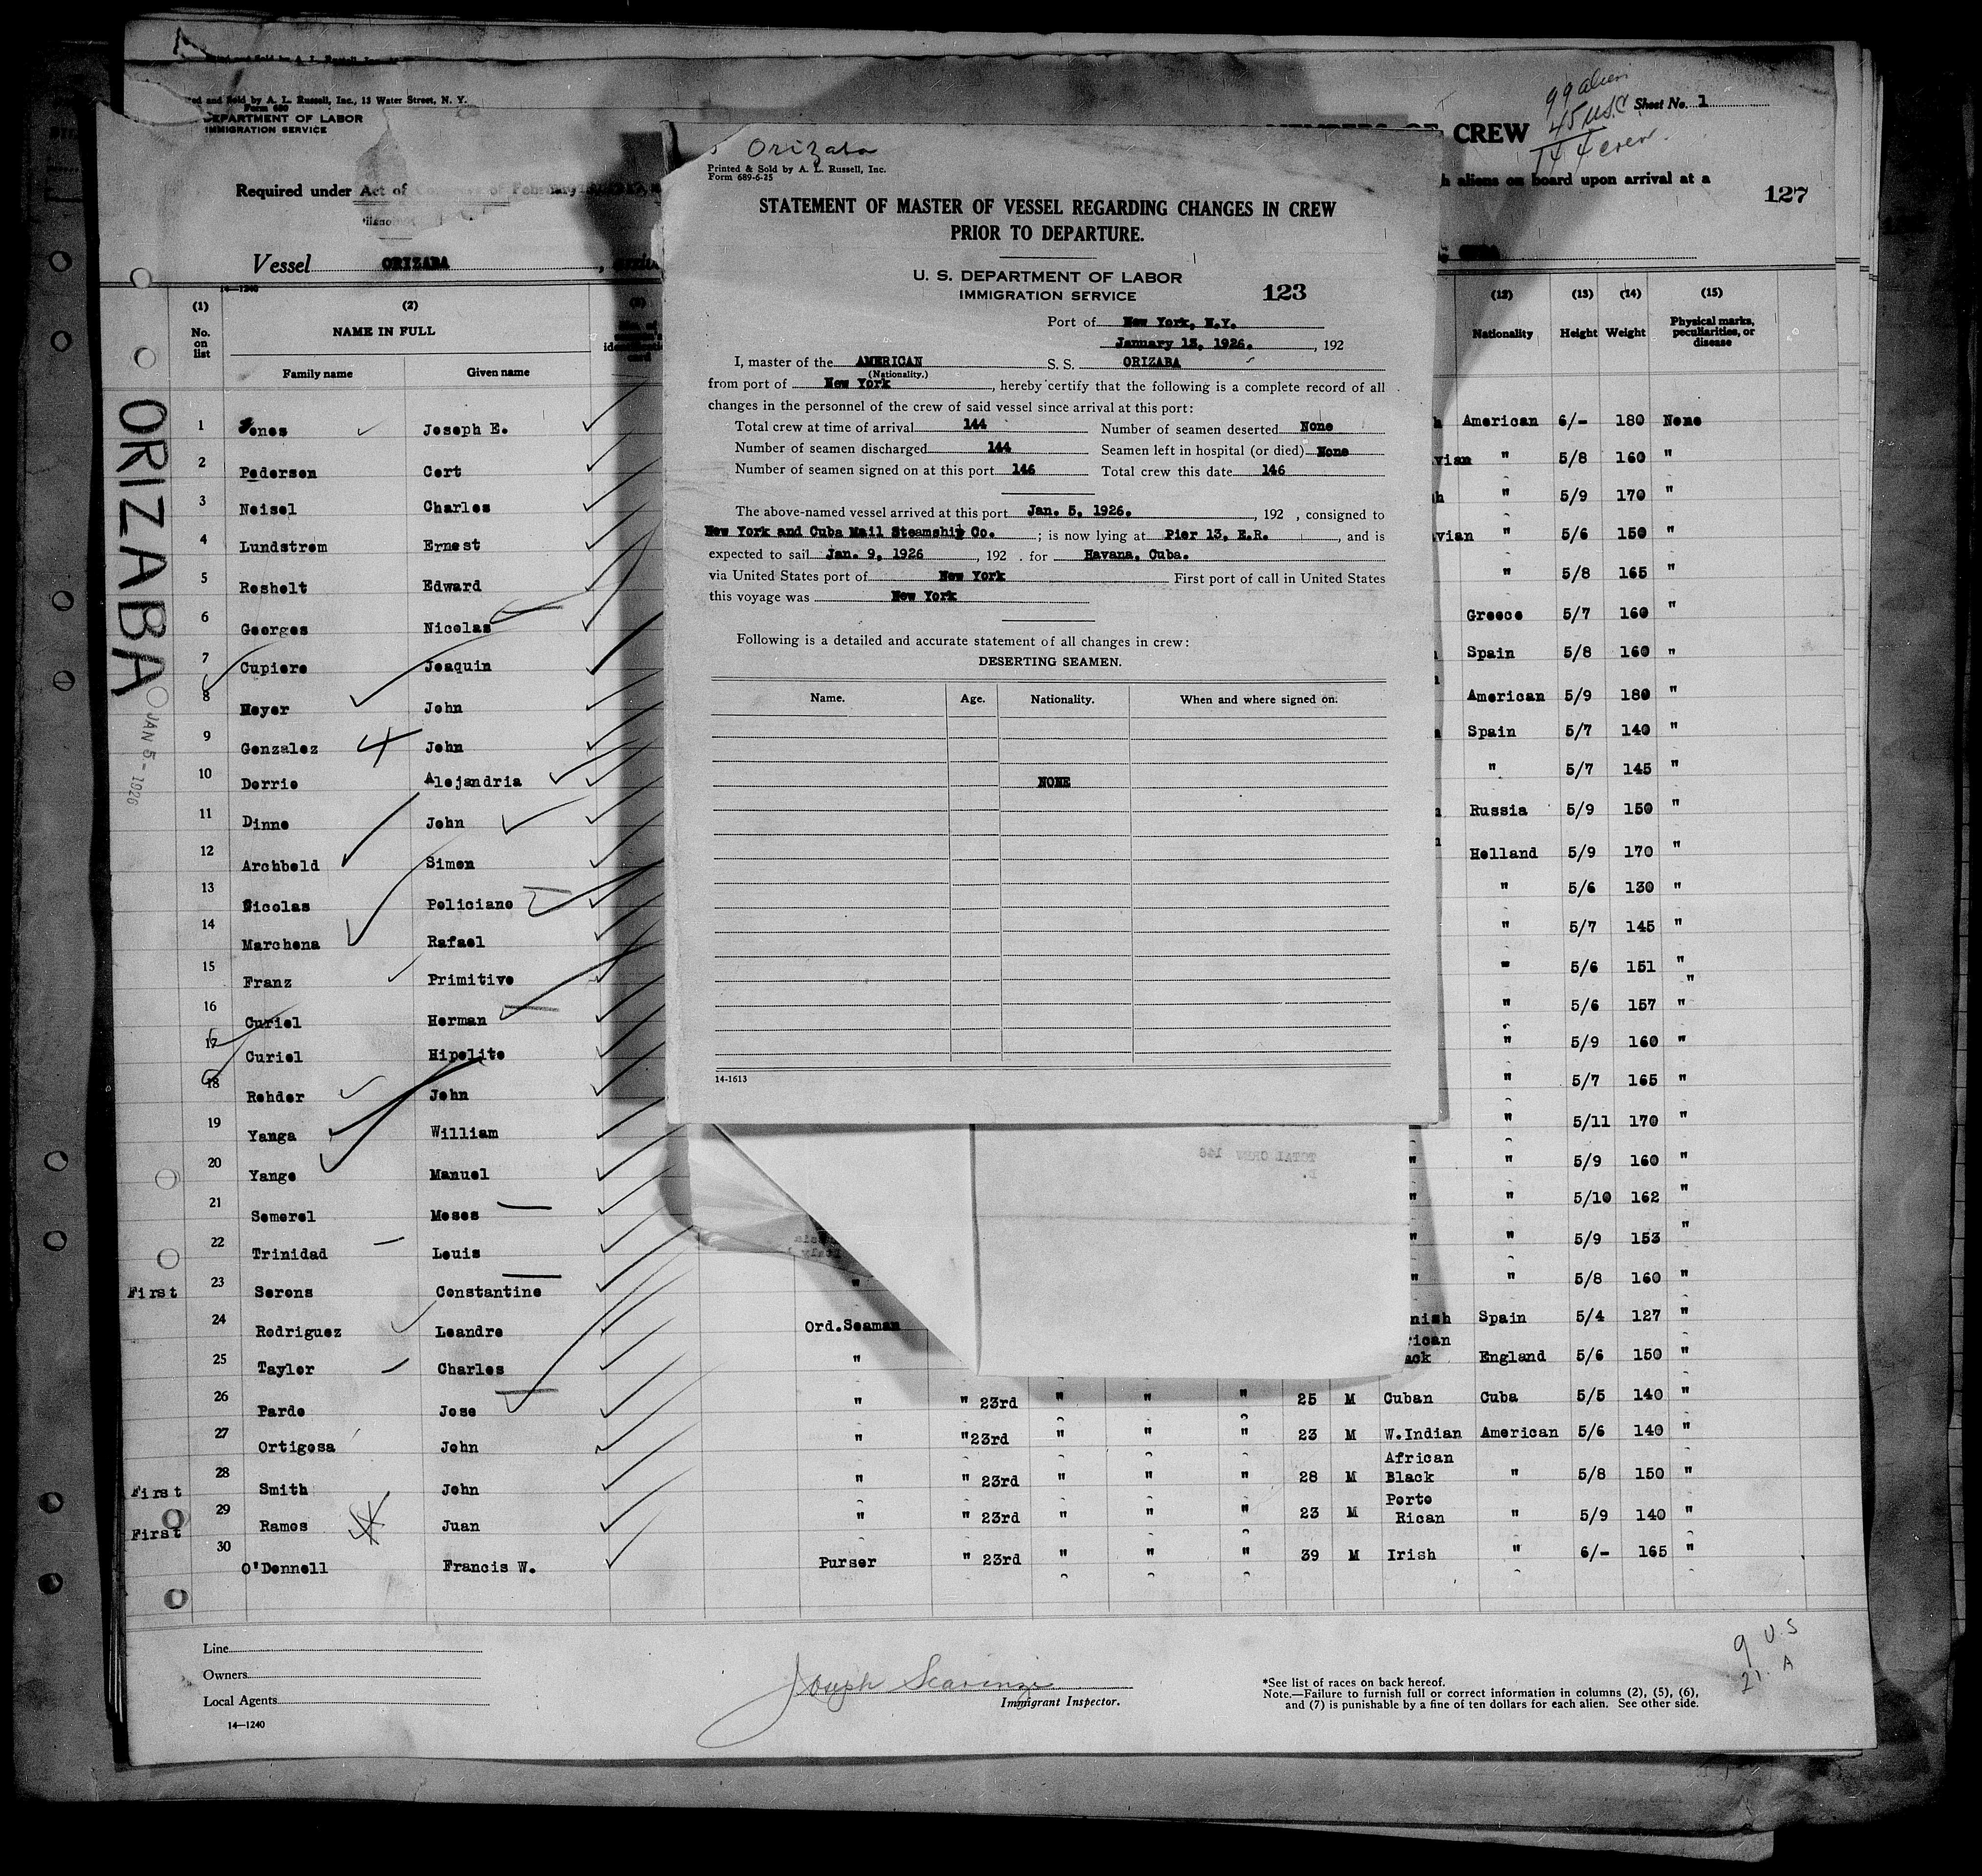 ed and Sold by A. L. Russell, Inc., 13 Water Street, N. Y.
Form 680
DEPARTMENT OF LABOR
IMMIGRATION SERVICE
Required under Act of Congress of February
Vessel ORIZABA
CREW
99 alien
45 U.S.C
144 crew
Sheet No. 1
h aliens on board upon arrival at a
127
ORIZABA
JAN 5 - 1926
14-1240
(1) (2) (3) (12) (13) (14) (15)
No. on list
NAME IN FULL
Family name Given name
Nationality Height Weight Physical marks, peculiarities, or disease
1 Jones Joseph E. American 6/- 180 None
2 Pedersen Cert vian " 5/8 160 "
3 Neisel Charles h " 5/9 170 "
4 Lundstrom Ernest vian " 5/6 150 "
5 Reshelt Edward " 5/8 165 "
6 Georges Nicolas Greece 5/7 160 "
7 Cupiere Joaquin Spain 5/8 160 "
8 Meyer John American 5/9 180 "
9 Gonzalez John Spain 5/7 140 "
10 Dorrie Alejandria " 5/7 145 "
11 Dinne John Russia 5/9 150 "
12 Archbold Simon Holland 5/9 170 "
13 Nicolas Policiano " 5/6 130 "
14 Marchena Rafael " 5/7 145 "
15 Franz Primitive " 5/6 151 "
16 Curiel Herman " 5/6 157 "
17 Curiel Hipolito " 5/9 160 "
18 Rehder John " 5/7 165 "
19 Yanga William " 5/11 170 "
20 Yange Manuel " " 5/9 160 "
21 Semerel Moses " " 5/10 162 "
22 Trinidad Louis " " 5/9 153 "
First 23 Serons Constantine " " " 5/8 160 "
24 Rodriguez Leandre Ord.Seaman nish Spain 5/4 127 "
25 Tayler Charles " rican ack England 5/6 150 "
26 Pardo Jose " " 23rd " " " 25 M Cuban Cuba 5/5 140 "
27 Ortigosa John " "23rd " " " 23 M W.Indian American 5/6 140 "
First 28 Smith John " " 23rd " " " 28 M African Black " 5/8 150 "
First 29 Ramos Juan " " 23rd " " " 23 M Porto Rican " 5/9 140 "
30 O'Donnell Francis W. Purser " 23rd " " " 39 M Irish " 6/- 165 "
Line
Owners
Local Agents
14—1240
Joseph Scavinze
Immigrant Inspector.
*See list of races on back hereof.
Note.—Failure to furnish full or correct information in columns (2), (5), (6),
and (7) is punishable by a fine of ten dollars for each alien. See other side.
9 U.S
21. A
Orizaba
Printed & Sold by A. L. Russell, Inc.
Form 689-6-25
STATEMENT OF MASTER OF VESSEL REGARDING CHANGES IN CREW
PRIOR TO DEPARTURE.
U. S. DEPARTMENT OF LABOR
IMMIGRATION SERVICE
123
Port of New York, N.Y.
January 13, 1926. , 192
I, master of the AMERICAN S. S. ORIZABA
(Nationality.)
from port of New York , hereby certify that the following is a complete record of all
changes in the personnel of the crew of said vessel since arrival at this port:
Total crew at time of arrival 144 Number of seamen deserted None
Number of seamen discharged 144 Seamen left in hospital (or died) None
Number of seamen signed on at this port 146 Total crew this date 146
The above-named vessel arrived at this port Jan. 5, 1926. , 192 , consigned to
New York and Cuba Mail Steamship Co. ; is now lying at Pier 13, E.R. , and is
expected to sail Jan. 9, 1926 , 192 . for Havana, Cuba.
via United States port of New York First port of call in United States
this voyage was New York
Following is a detailed and accurate statement of all changes in crew:
DESERTING SEAMEN.
Name. Age. Nationality. When and where signed on.
NONE
14-1613
TOTAL CREW 146